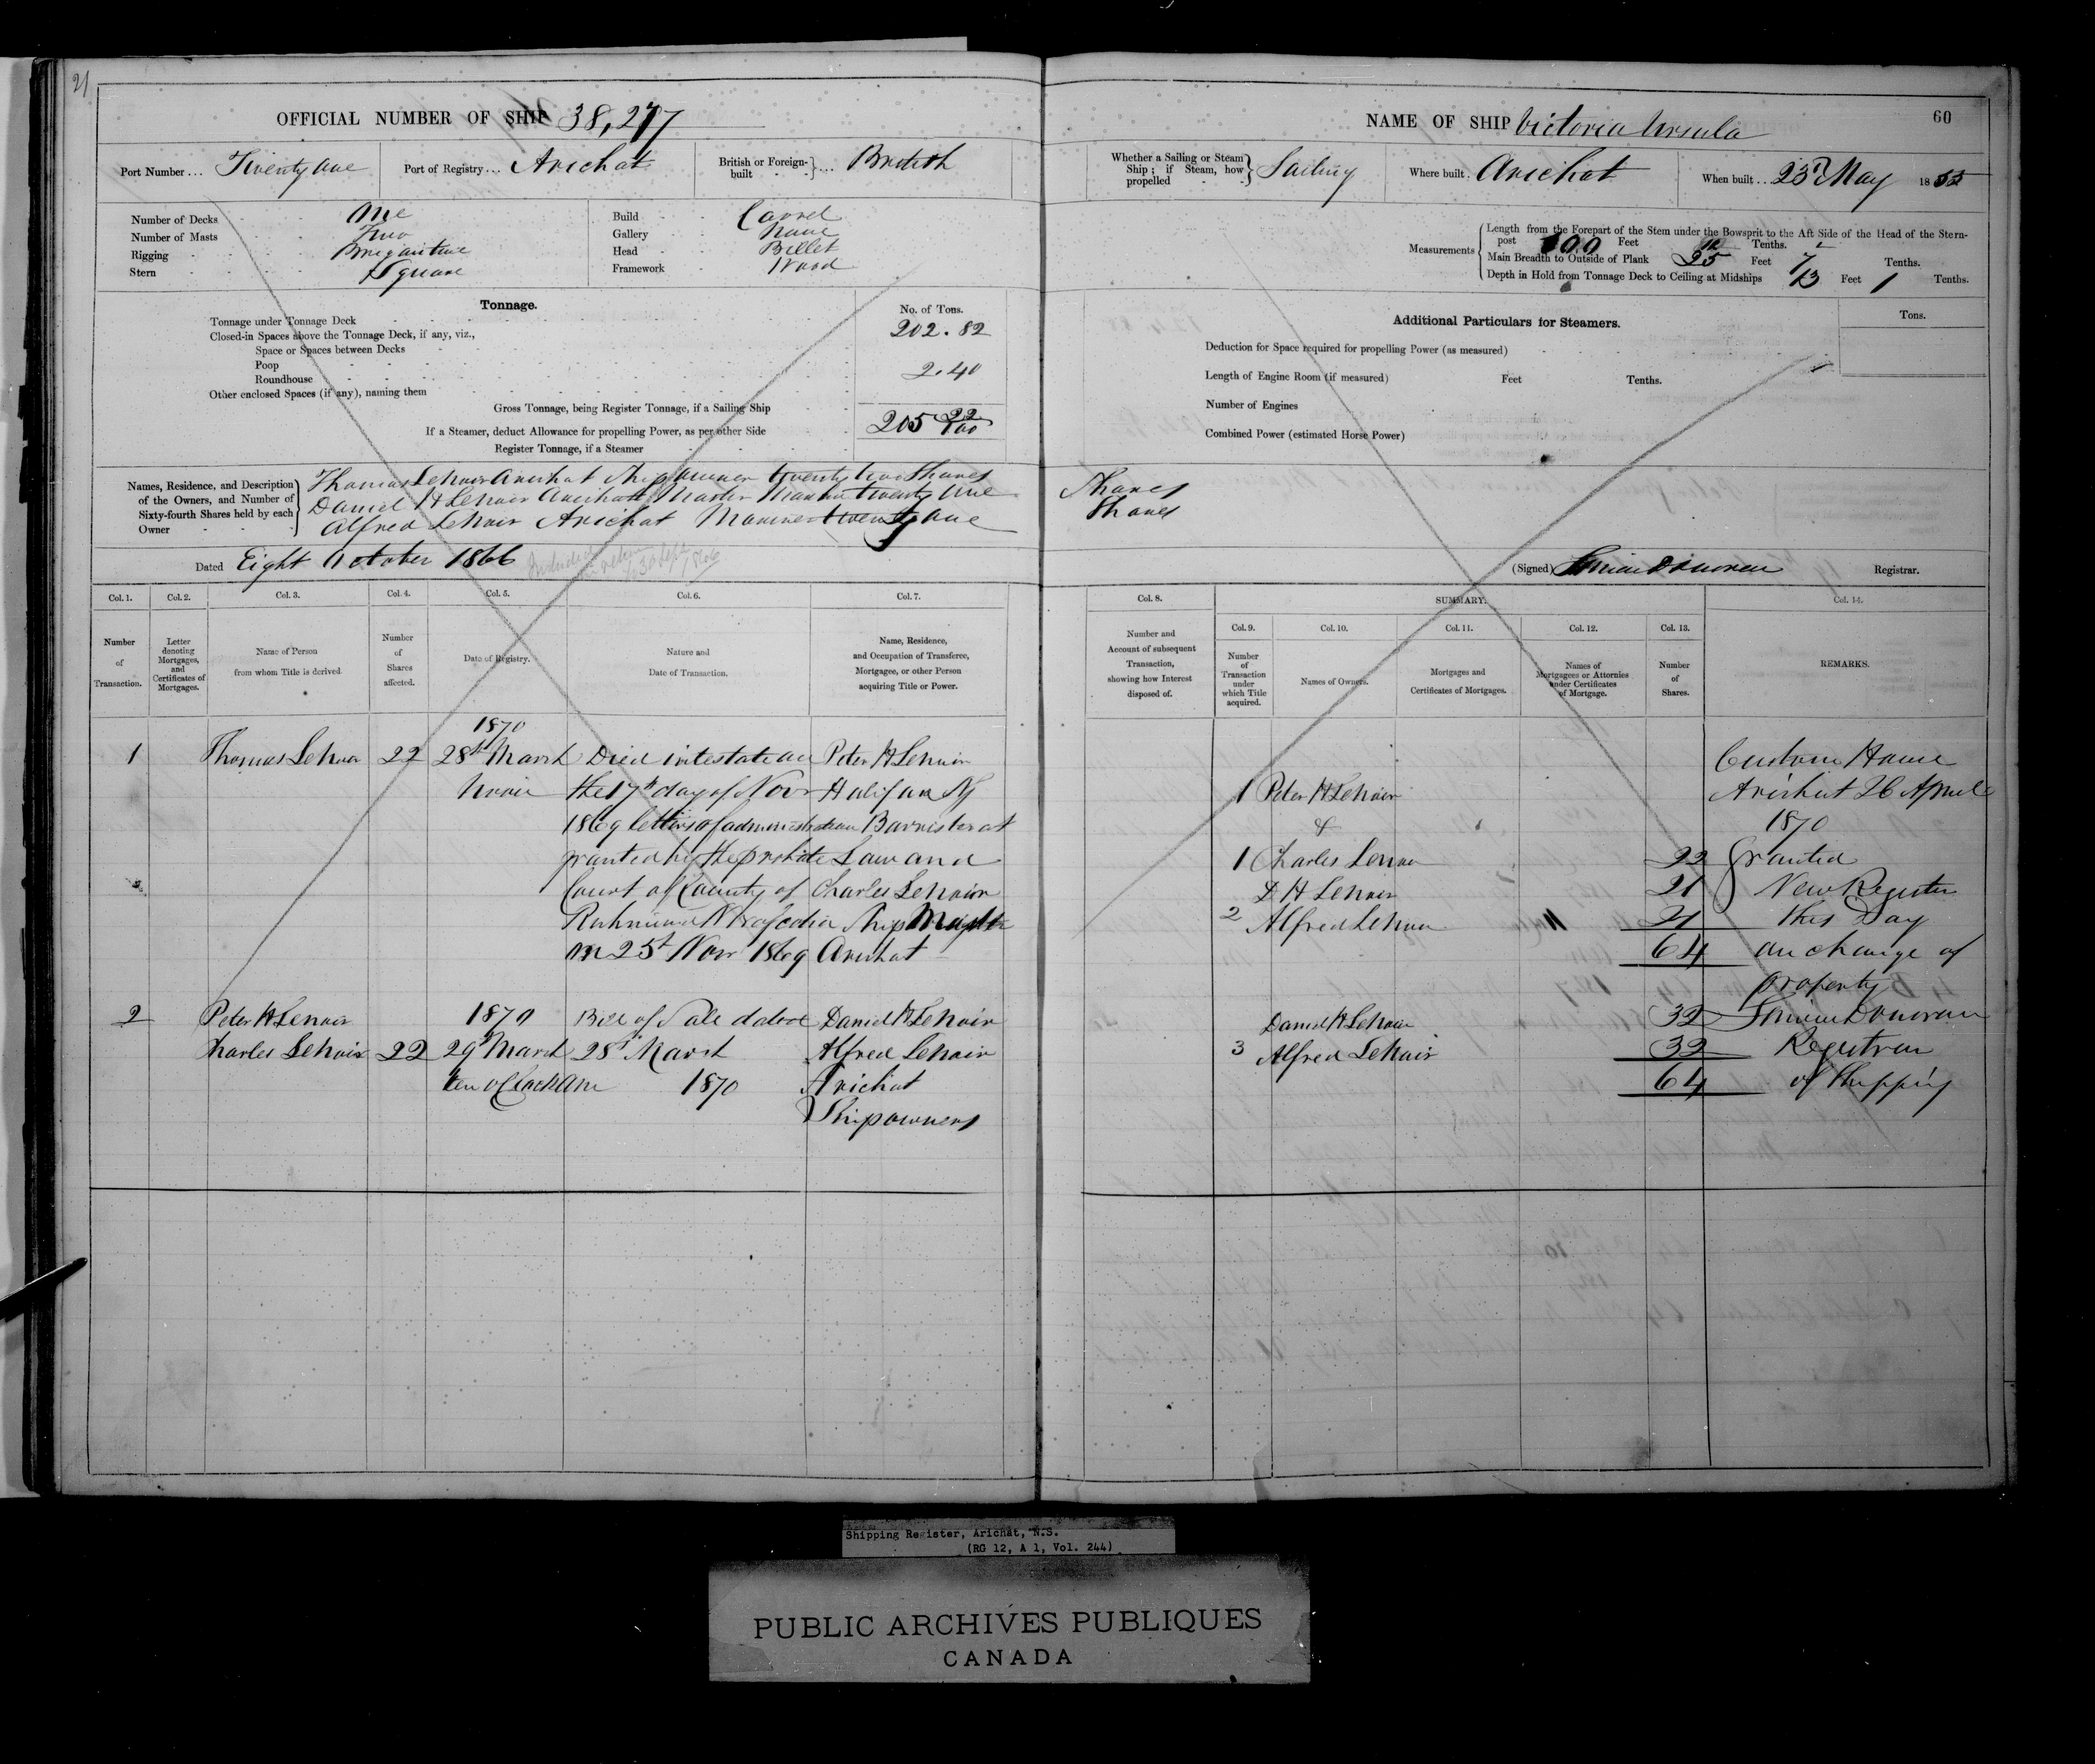 21
OFFICIAL NUMBER OF SHIP 38,277
Port Number ... Twenty one
Port of Registry ... Arichat
British or Foreign-built ... British
Number of Decks One
Number of Masts Two
Rigging Brigantine
Stern Square
Build Carvel
Gallery None
Head Billet
Framework Wood
Tonnage.
No. of Tons.
Tonnage under Tonnage Deck 202.82
Closed-in Spaces above the Tonnage Deck, if any, viz.,
Space or Spaces between Decks
Poop
Roundhouse 2.40
Other enclosed Spaces (if any), naming them
Gross Tonnage, being Register Tonnage, if a Sailing Ship 205 22/100
If a Steamer, deduct Allowance for propelling Power, as per other Side
Register Tonnage, if a Steamer
Names, Residence, and Description of the Owners, and Number of Sixty-fourth Shares held by each Owner
Thomas LeNoir Arichat Ship Owner twenty two Shares
Daniel H LeNoir Arichat Master Mariner twenty one Shares
Alfred LeNoir Arichat Mariner twenty one Shares
Dated Eight October 1866
NAME OF SHIP Victoria Ursula
60
Whether a Sailing or Steam Ship; if Steam, how propelled Sailing
Where built Arichat
When built .. 23d May 1855
Measurements
Length from the Forepart of the Stem under the Bowsprit to the Aft Side of the Head of the Stern-post 100 Feet Tenths.
Main Breadth to Outside of Plank 25 Feet 7 Tenths.
Depth in Hold from Tonnage Deck to Ceiling at Midships 13 Feet 1 Tenths.
Additional Particulars for Steamers.
Tons.
Deduction for Space required for propelling Power (as measured)
Length of Engine Room (if measured) Feet Tenths.
Number of Engines
Combined Power (estimated Horse Power)
(Signed) Simon Donovan Registrar.
Col. 1.
Col. 2.
Col. 3.
Col. 4.
Col. 5.
Col. 6.
Col. 7.
Number of Transaction.
Letter denoting Mortgages, and Certificates of Mortgages.
Name of Person from whom Title is derived.
Number of Shares affected.
Date of Registry.
Nature and Date of Transaction.
Name, Residence, and Occupation of Transferee, Mortgagee, or other Person acquiring Title or Power.
1
Thomas LeNoir
22
1870
28th March
Noon
Died intestate on
the 17th day of Nov
1869 letters of administration
granted by the probate
Court of County of
Richmond N Scotia
on 25th Novr 1869
Peter H LeNoir
Halifax NS
Barrister at
Law and
Charles LeNoir
Ship Master
Arichat
2
Peter H LeNoir
Charles LeNoir
22
1870
29th March
ten o'clock am
Bill of Sale dated
28th March
1870
Daniel H LeNoir
Alfred LeNoir
Arichat
Shipowners
Col. 8.
SUMMARY.
Col. 14.
Col. 9.
Col. 10.
Col. 11.
Col. 12.
Col. 13.
Number and Account of subsequent Transaction, showing how Interest disposed of.
Number of Transaction under which Title acquired.
Names of Owners.
Mortgages and Certificates of Mortgages.
Names of Mortgagees or Attornies under Certificates of Mortgage.
Number of Shares.
REMARKS.
1 Peter H LeNoir
&
1 Charles Lenoir 22
D H LeNoir 21
2 Alfred LeNoir 21
64
Daniel H LeNoir 32
3 Alfred LeNoir 32
64
Custom House
Arichat 26 April
1870
Granted
New Register
this Day
on change of
property
Simon Donovan
Registrar
of Shipping
Shipping Register, Arichat, N.S.
(RG 12, A 1, Vol. 244)
PUBLIC ARCHIVES PUBLIQUES
CANADA